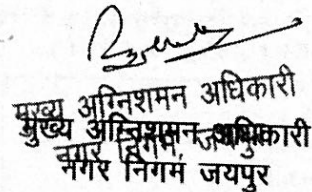 मुख्य अग्निशमन अधिकारी
मुख्य अग्निशमन अधिकारी
नगर निगम, जयपुर
नगर निगम जयपुर